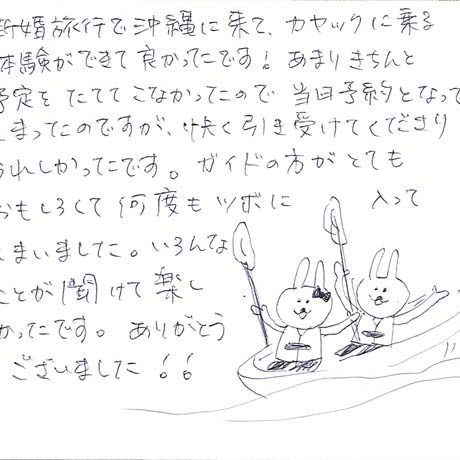 新婚旅行で沖縄に来て、カヤックに乗る
体験ができて良かったです！あまりきちんと
予定をたててこなかったので当日予約となって
しまったのですが、快く引き受けてくださり
うれしかったです。ガイドの方がとても
おもしろくて何度もツボに入って
しまいました。いろんな
ことが聞けて楽し
かったです。ありがとう
ございました!!